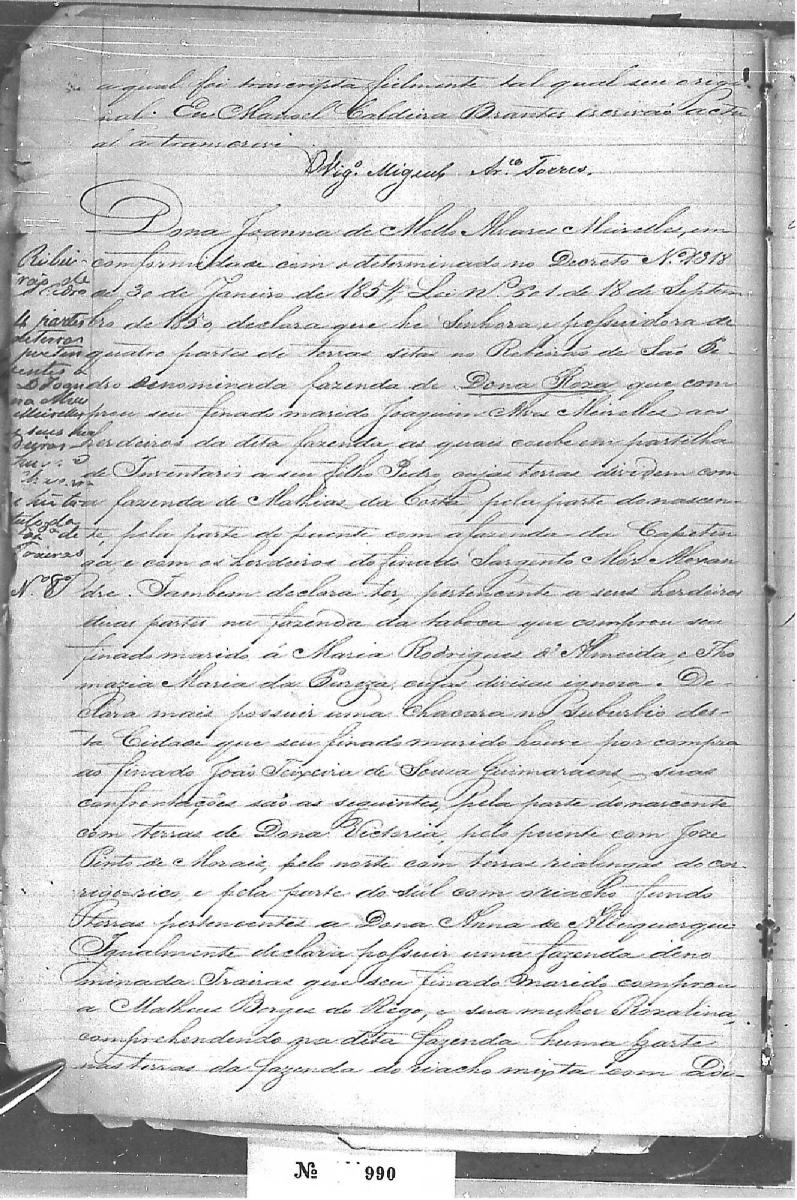 a qual foi transcripta fielmente tal qual seu origi
nal. Eu Manoel Caldeira Brantes escrivão actu
al a transcrevi
Vigº. Miguel Torres.
Dona Joanna de Mello Alvares Meirelles, em
conformidade com o determinado no Decreto Nº 1318
de 30 de Janeiro de 1854, Lei nº 601 de 18 de Septem
bro de 1850 declara que he Senhora, e possuidora de
quatro partes de terras sitas no Ribeirão de São Pe
dro denominada fazenda de Dona Roza que com
prou seu finado marido Joaquim Alves Meirelles aos
herdeiros da dita fazenda as quais coube em partelha
de Inventario a seu filho Pedro cujas terras dividem com
a fazenda de Mathias da Costa, pela parte do nascen
te, pela parte do puente com a fazenda da Capetin
ga e com os herdeiros do finado Sargento Mór Alexan
dre. Tambem declara ter, pertencente a seus herdeiros
duas partes na fazenda da taboca que comprou seu
finado marido á Maria Rodrigues d'Almeida, e Tho
mazia Maria da Pureza, cujas divisas ignora. De
clara mais possuir uma Chacara no Suburbio des
ta Cidade que seu finado marido houve por compra
ao finado João Teixeira de Souza Guimaraens, suas
confrontações são as seguintes, Pela parte do nascente
com terras de Dona Victoria, pelo puente com Joze
Pinto de Morais, pelo norte com terras rialengas do cor
rigo-rico, e pela parte do Sul com o riacho fundo
terras pertencentes a Dona Anna de Albuquerque
Igualmente declara possuir uma fazenda deno
minada Trairas que seu finado marido comprou
a Matheus Borges do Rego, e sua mulher Rozalina,
comprehendendo na dita fazenda huma parte
nas terras da fazenda do riacho mixta com
Ribei
rão de
S. Pedro
4 partes
de terras
perten
centes a
D. Joan
na
Meirelles
e seus her
deiros
de
Trairas
Nº 8º
Nº 990